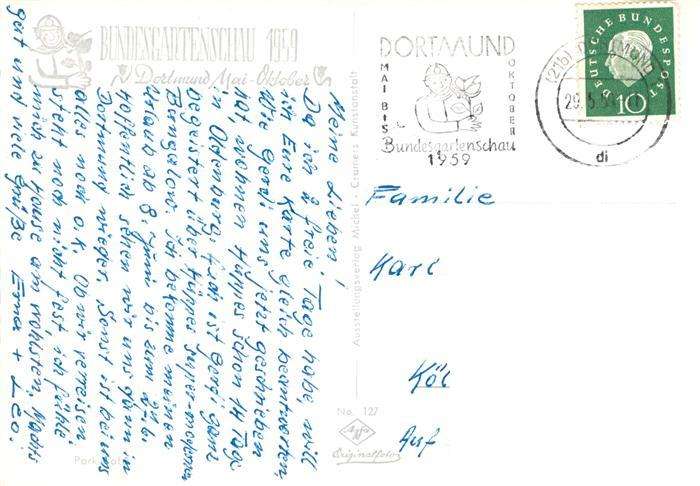 BUNDESGARTENSCHAU 1959
Dortmund Mai-Oktober
Meine Lieben!
Da ich 2 freie Tage habe, will
ich Eure Karte gleich beantworten,
Wie Gerdi uns jetzt geschrieben
hat, wohnen Hüpers schon 14 Tage
in Oldenburg, Gerdi ist ganz
begeistert über Hüpers super-modernen
Bungalow. Ich bekomme meinen
Urlaub ab 8. Juni bis zum 24.6.
hoffentlich sehen wir uns dann in
Dortmund wieder. Sonst ist bei uns
alles noch o.k. Ob wir verreisen
steht noch nicht fest, ich fühle
mich zu Hause am wohlsten. Machts
gut und viele Grüße Erna + Leo.
Park
Ausstellungsverlag Mickel - Cramers Kunstanstalt
No. 127
Agfa
Originalfoto
DORTMUND
MAI BIS
OKTOBER
Bundesgartenschau
1959
(21b) DORTMUND
29.5.59
di
DEUTSCHE BUNDESPOST
10
Familie
Karl
Köl
Auf